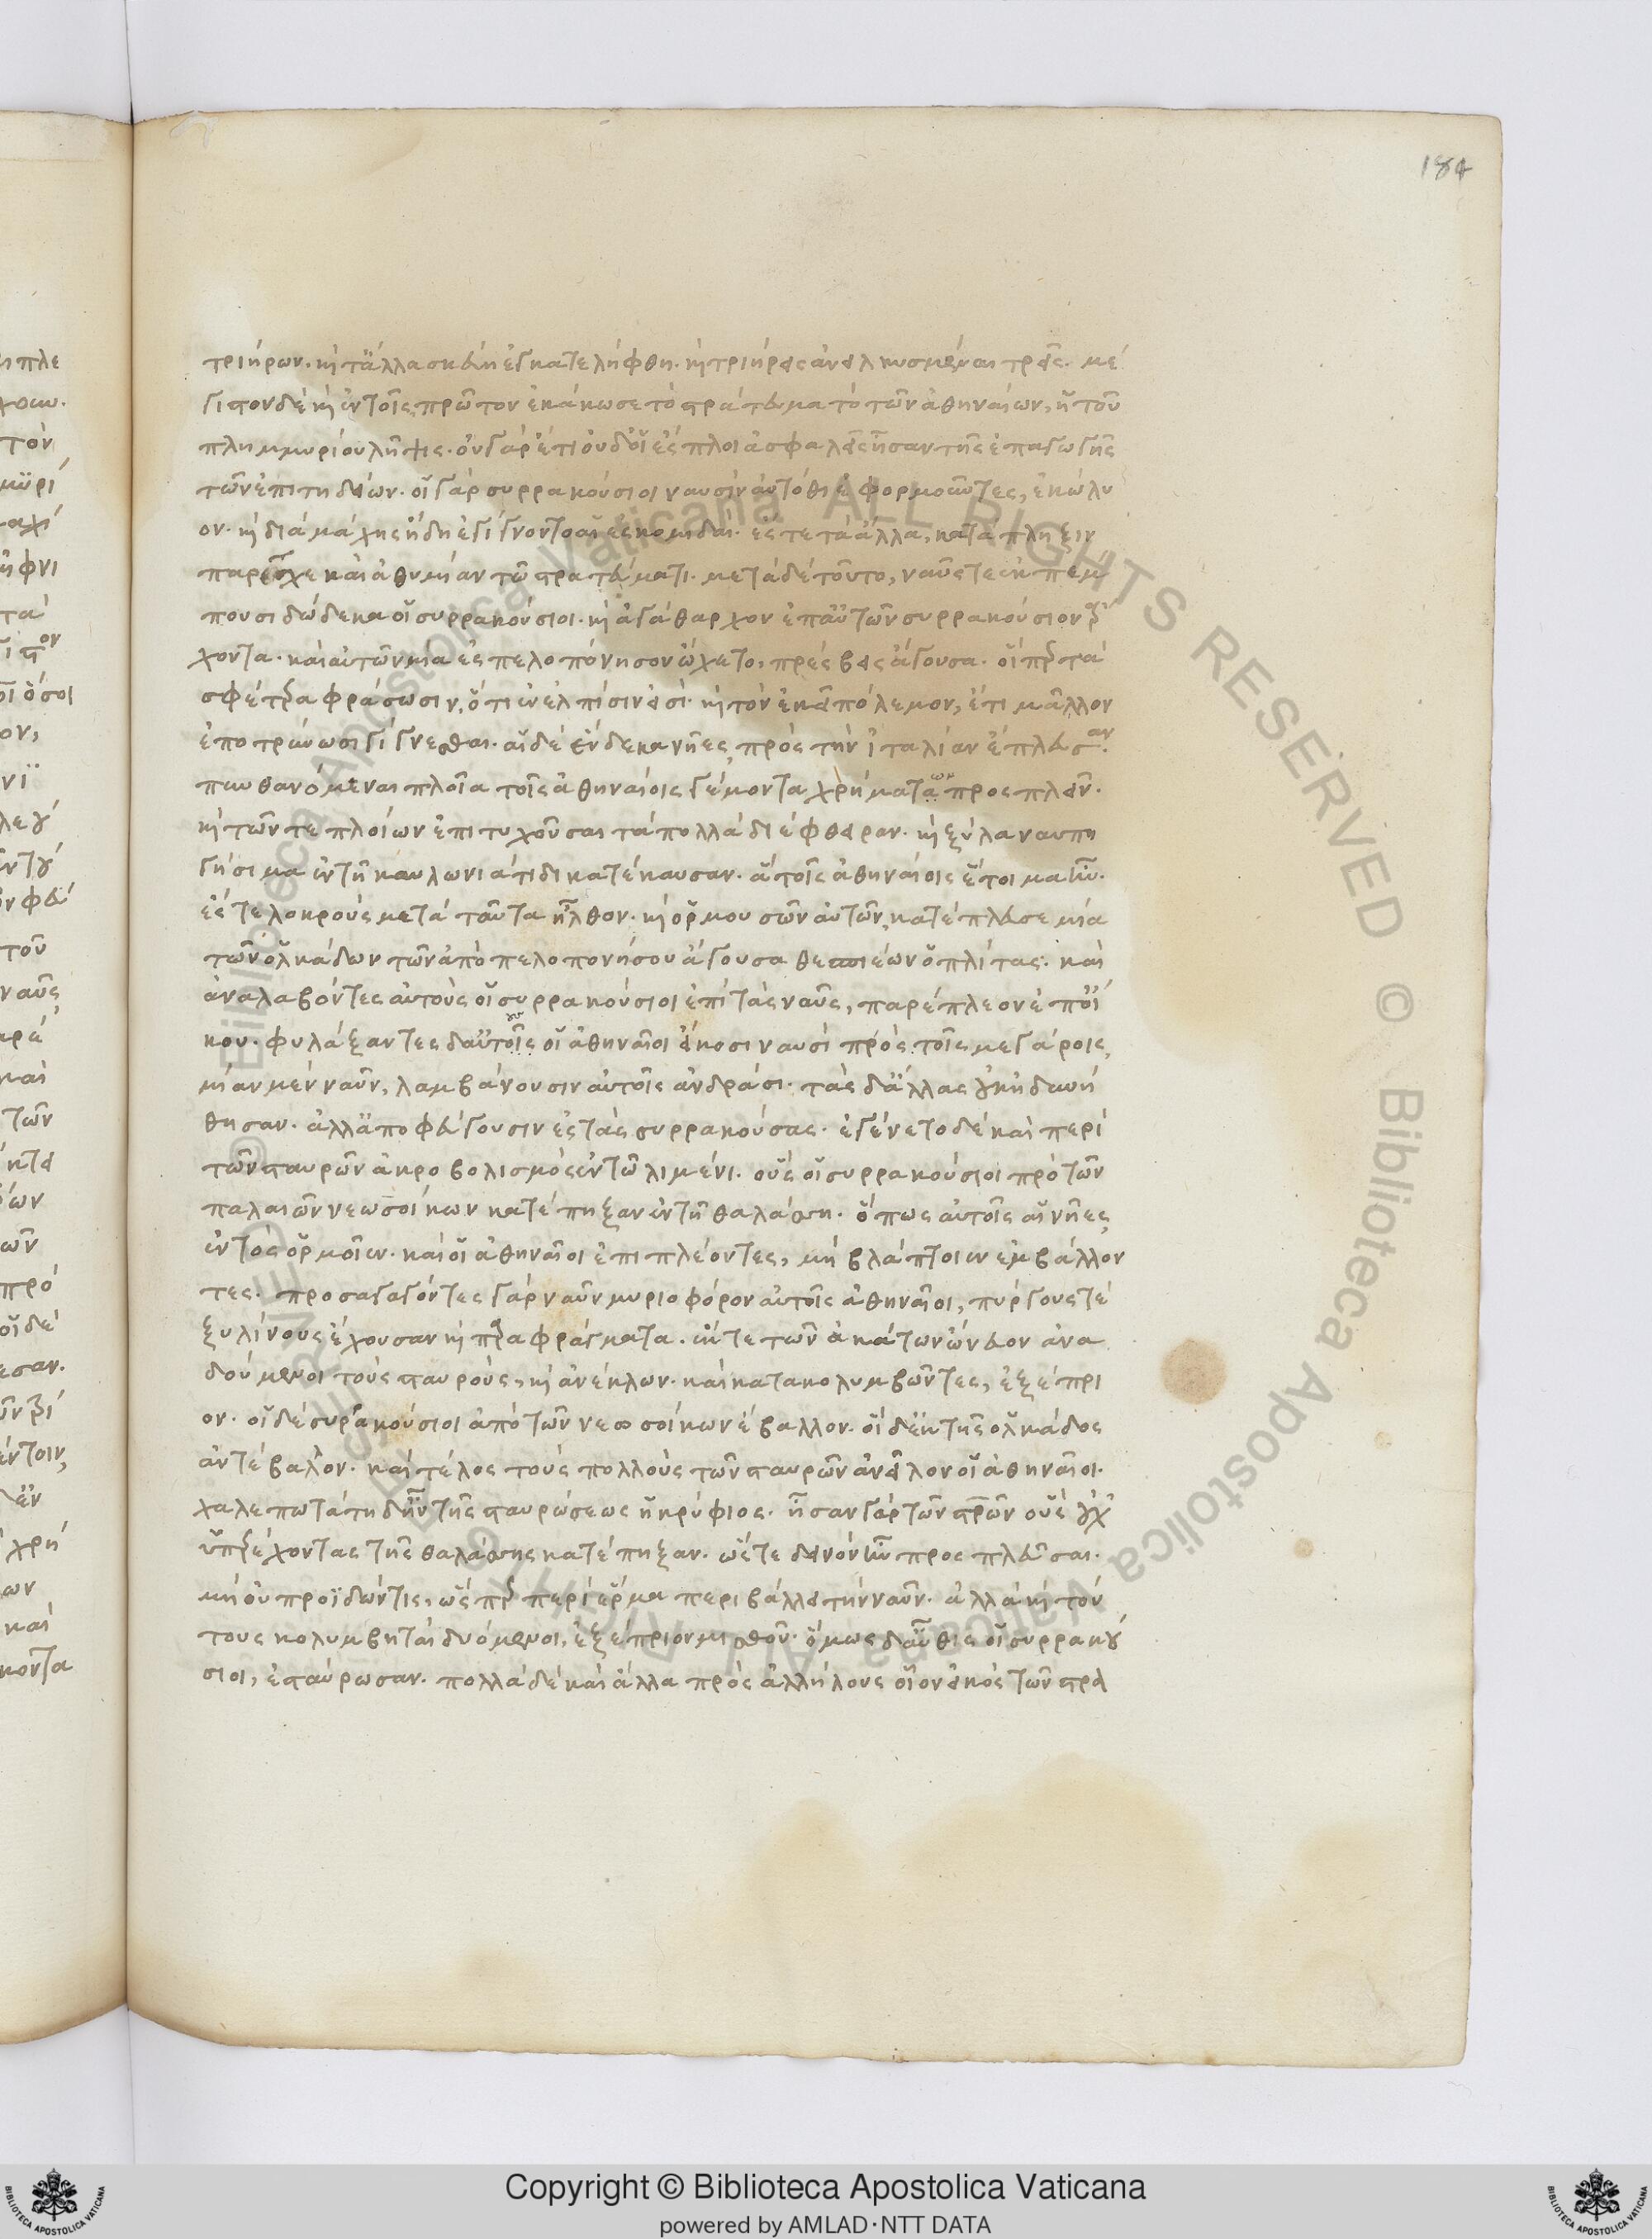 184
τριήρων. καὶ τἄλλα σκεύη ἐγκατελήφθη. καὶ τριήρεις ἀνειλκυσμέναι τρεῖς. μέ
γιστον δὲ καὶ ἐν τοῖς πρῶτον ἐκάκωσε τὸ στράτευμα τὸ τῶν ἀθηναίων, ἡ τοῦ
πλημμυρίου λῆψις. οὐ γὰρ ἔτι οὐδ' οἱ ἔσπλοι ἀσφαλεῖς ἦσαν τῆς ἐπαγωγῆς
τῶν ἐπιτηδείων. οἱ γὰρ συρρακούσιοι ναυσὶν αὐτόθι ἐφορμοῦντες, ἐκώλυ
ον. καὶ διὰ μάχης ἤδη ἐγίγνοντο αἱ ἐσκομιδαί. ἔς τε τὰ ἄλλα, κατάπληξιν
παρέσχε καὶ ἀθυμίαν τῶ στρατεύματι. μετὰ δὲ τοῦτο, ναῦς τε ἐκπέμ
πουσι δώδεκα οἱ συρρακούσιοι. καὶ ἀγάθαρχον ἐπ' αὐτῶν συρρακούσιον ἄρ
χοντα. καὶ αὐτῶν μία ἐς πελοπόνησον ὤχετο, πρέσβεις ἄγουσα. οἵπερ τὰ
σφέτερα φράσωσιν, ὅτι ἐν ἐλπίσιν εἰσί. καὶ τὸν ἐκεῖ πόλεμον, ἔτι μᾶλλον
ἐποτρύνωσι γίγνεσθαι. αἱ δὲ ἕνδεκα νῆες πρὸς τὴν ἰταλίαν ἔπλευσαν.
πυνθανόμεναι πλοῖα τοῖς ἀθηναίοις γέμοντα χρημάτων προσπλεῖν.
καὶ τῶν τε πλοίων ἐπιτυχοῦσαι τὰ πολλὰ διέφθειραν. καὶ ξύλα ναυπη
γήσιμα ἐν τῆ καυλωνιάτιδι κατέκαυσαν. ἃ τοῖς ἀθηναίοις ἑτοῖμα ἦν.
ἔς τε λοκροὺς μετὰ ταῦτα ἦλθον. καὶ ὁρμουσῶν αὐτῶν, κατέπλευσε μία
τῶν ὁλκάδων τῶν ἀπὸ πελοπονήσου ἄγουσα θεσπιέων ὁπλίτας. καὶ
ἀναλαβόντες αὐτοὺς οἱ συρρακούσιοι ἐπὶ τὰς ναῦς, παρέπλεον ἐπ' οἴ
κου. φυλάξαντες δ' αὐτοῖς οἱ ἀθηναῖοι εἴκοσι ναυσὶ πρὸς τοῖς μεγάροις,
μίαν μὲν ναῦν, λαμβάνουσιν αὐτοῖς ἀνδράσι. τὰς δ' ἄλλας οὐκ ἠδυνή
θησαν. ἀλλ' ἀποφεύγουσιν ἐς τὰς συρρακούσας. ἐγένετο δὲ καὶ περὶ
τῶν σταυρῶν ἀκροβολισμὸς ἐν τῶ λιμένι. οὓς οἱ συρρακούσιοι πρὸ τῶν
παλαιῶν νεωσοίκων κατέπηξαν ἐν τῆ θαλάσση. ὅπως αὐτοῖς αἱ νῆες
ἐντὸς ὁρμοῖεν. καὶ οἱ ἀθηναῖοι ἐπιπλέοντες, μὴ βλάπτοιεν ἐμβάλλον
τες. προσαγαγόντες γὰρ ναῦν μυριοφόρον αὐτοῖς ἀθηναῖοι, πύργους τέ
ξυλίνους ἔχουσαν καὶ παραφράγματα. ἔκ τε τῶν ἀκάτων ὤνευον ἀνα
δούμενοι τοὺς σταυροὺς, καὶ ἀνέκλων. καὶ κατακολυμβῶντες, ἐξέπρι
ον. οἱ δὲ συρακούσιοι ἀπὸ τῶν νεωσοίκων ἔβαλλον. οἱ δ' ἐκ τῆς ὁλκάδος
ἀντέβαλλον. καὶ τέλος τοὺς πολλοὺς τῶν σταυρῶν ἀνεῖλον οἱ ἀθηναῖοι.
χαλεπωτάτη δ' ἦν τῆς σταυρώσεως ἡ κρύφιος. ἦσαν γὰρ τῶν σταυρῶν οὓς οὐχ
ὑπερέχοντας τῆς θαλάσσης κατέπηξαν. ὥστε δεινὸν ἦν προσπλεῦσαι.
μὴ οὐ προϊδών τις, ὥσπερ περὶ ἕρμα περιβάλλει τὴν ναῦν. ἀλλὰ καὶ τού
τους κολυμβηταὶ δυόμενοι, ἐξέπριον μισθοῦ. ὅμως δ' αὖθις οἱ συρρακού
σιοι, ἐσταύρωσαν. πολλὰ δὲ καὶ ἄλλα πρὸς ἀλλήλους οἷον εἰκὸς τῶν στρα
Copyright © Biblioteca Apostolica Vaticana
powered by AMLAD·NTT DATA